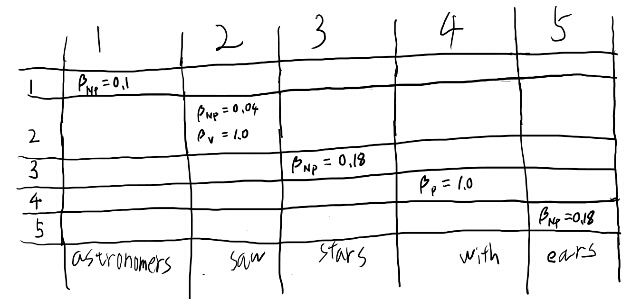 1 2 3 4 5
1 β_NP = 0.1
β_NP = 0.04
2 β_V = 1.0
3 β_NP = 0.18
4 β_P = 1.0
5 β_NP = 0.18
astronomers saw stars with ears